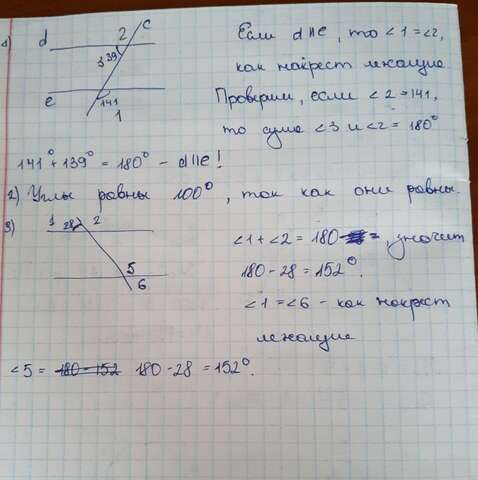 1)
d
2
c
3
39
e
141
1
Если d || е, то ∠1 = ∠2,
как накрест лежащие.
Проверим, если ∠2 = 141,
то сума ∠3 и ∠2 = 180°
141° + 139° = 180° - d || e!
2) Углы равны 100°, так как они равны.
3)
1 28 2
5
6
∠1 + ∠2 = 180 = , значит
180 - 28 = 152°.
∠1 = ∠6 - как накрест
лежащие
∠5 = 180 - 152 180 - 28 = 152°.